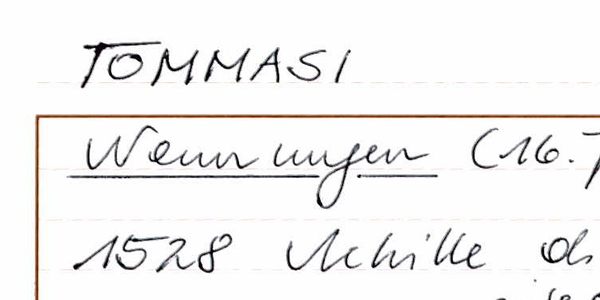 TOMMASI
Nennungen (16.
1528 Achille de